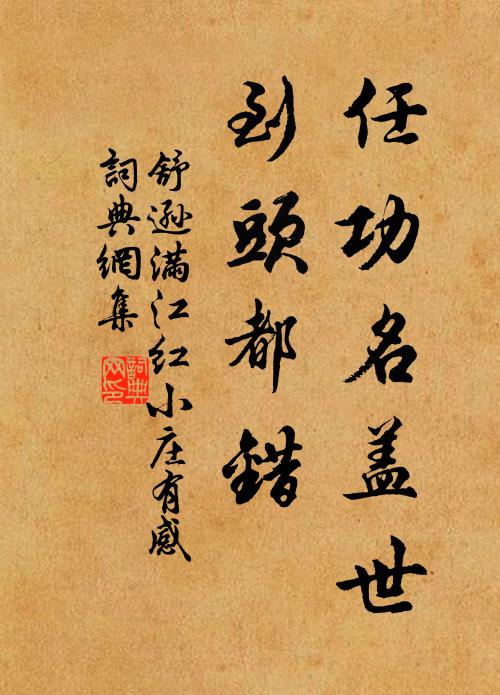 任功名盖世
到頭都錯
舒逊满江红小庄有感
詞典網集
詞典
网印